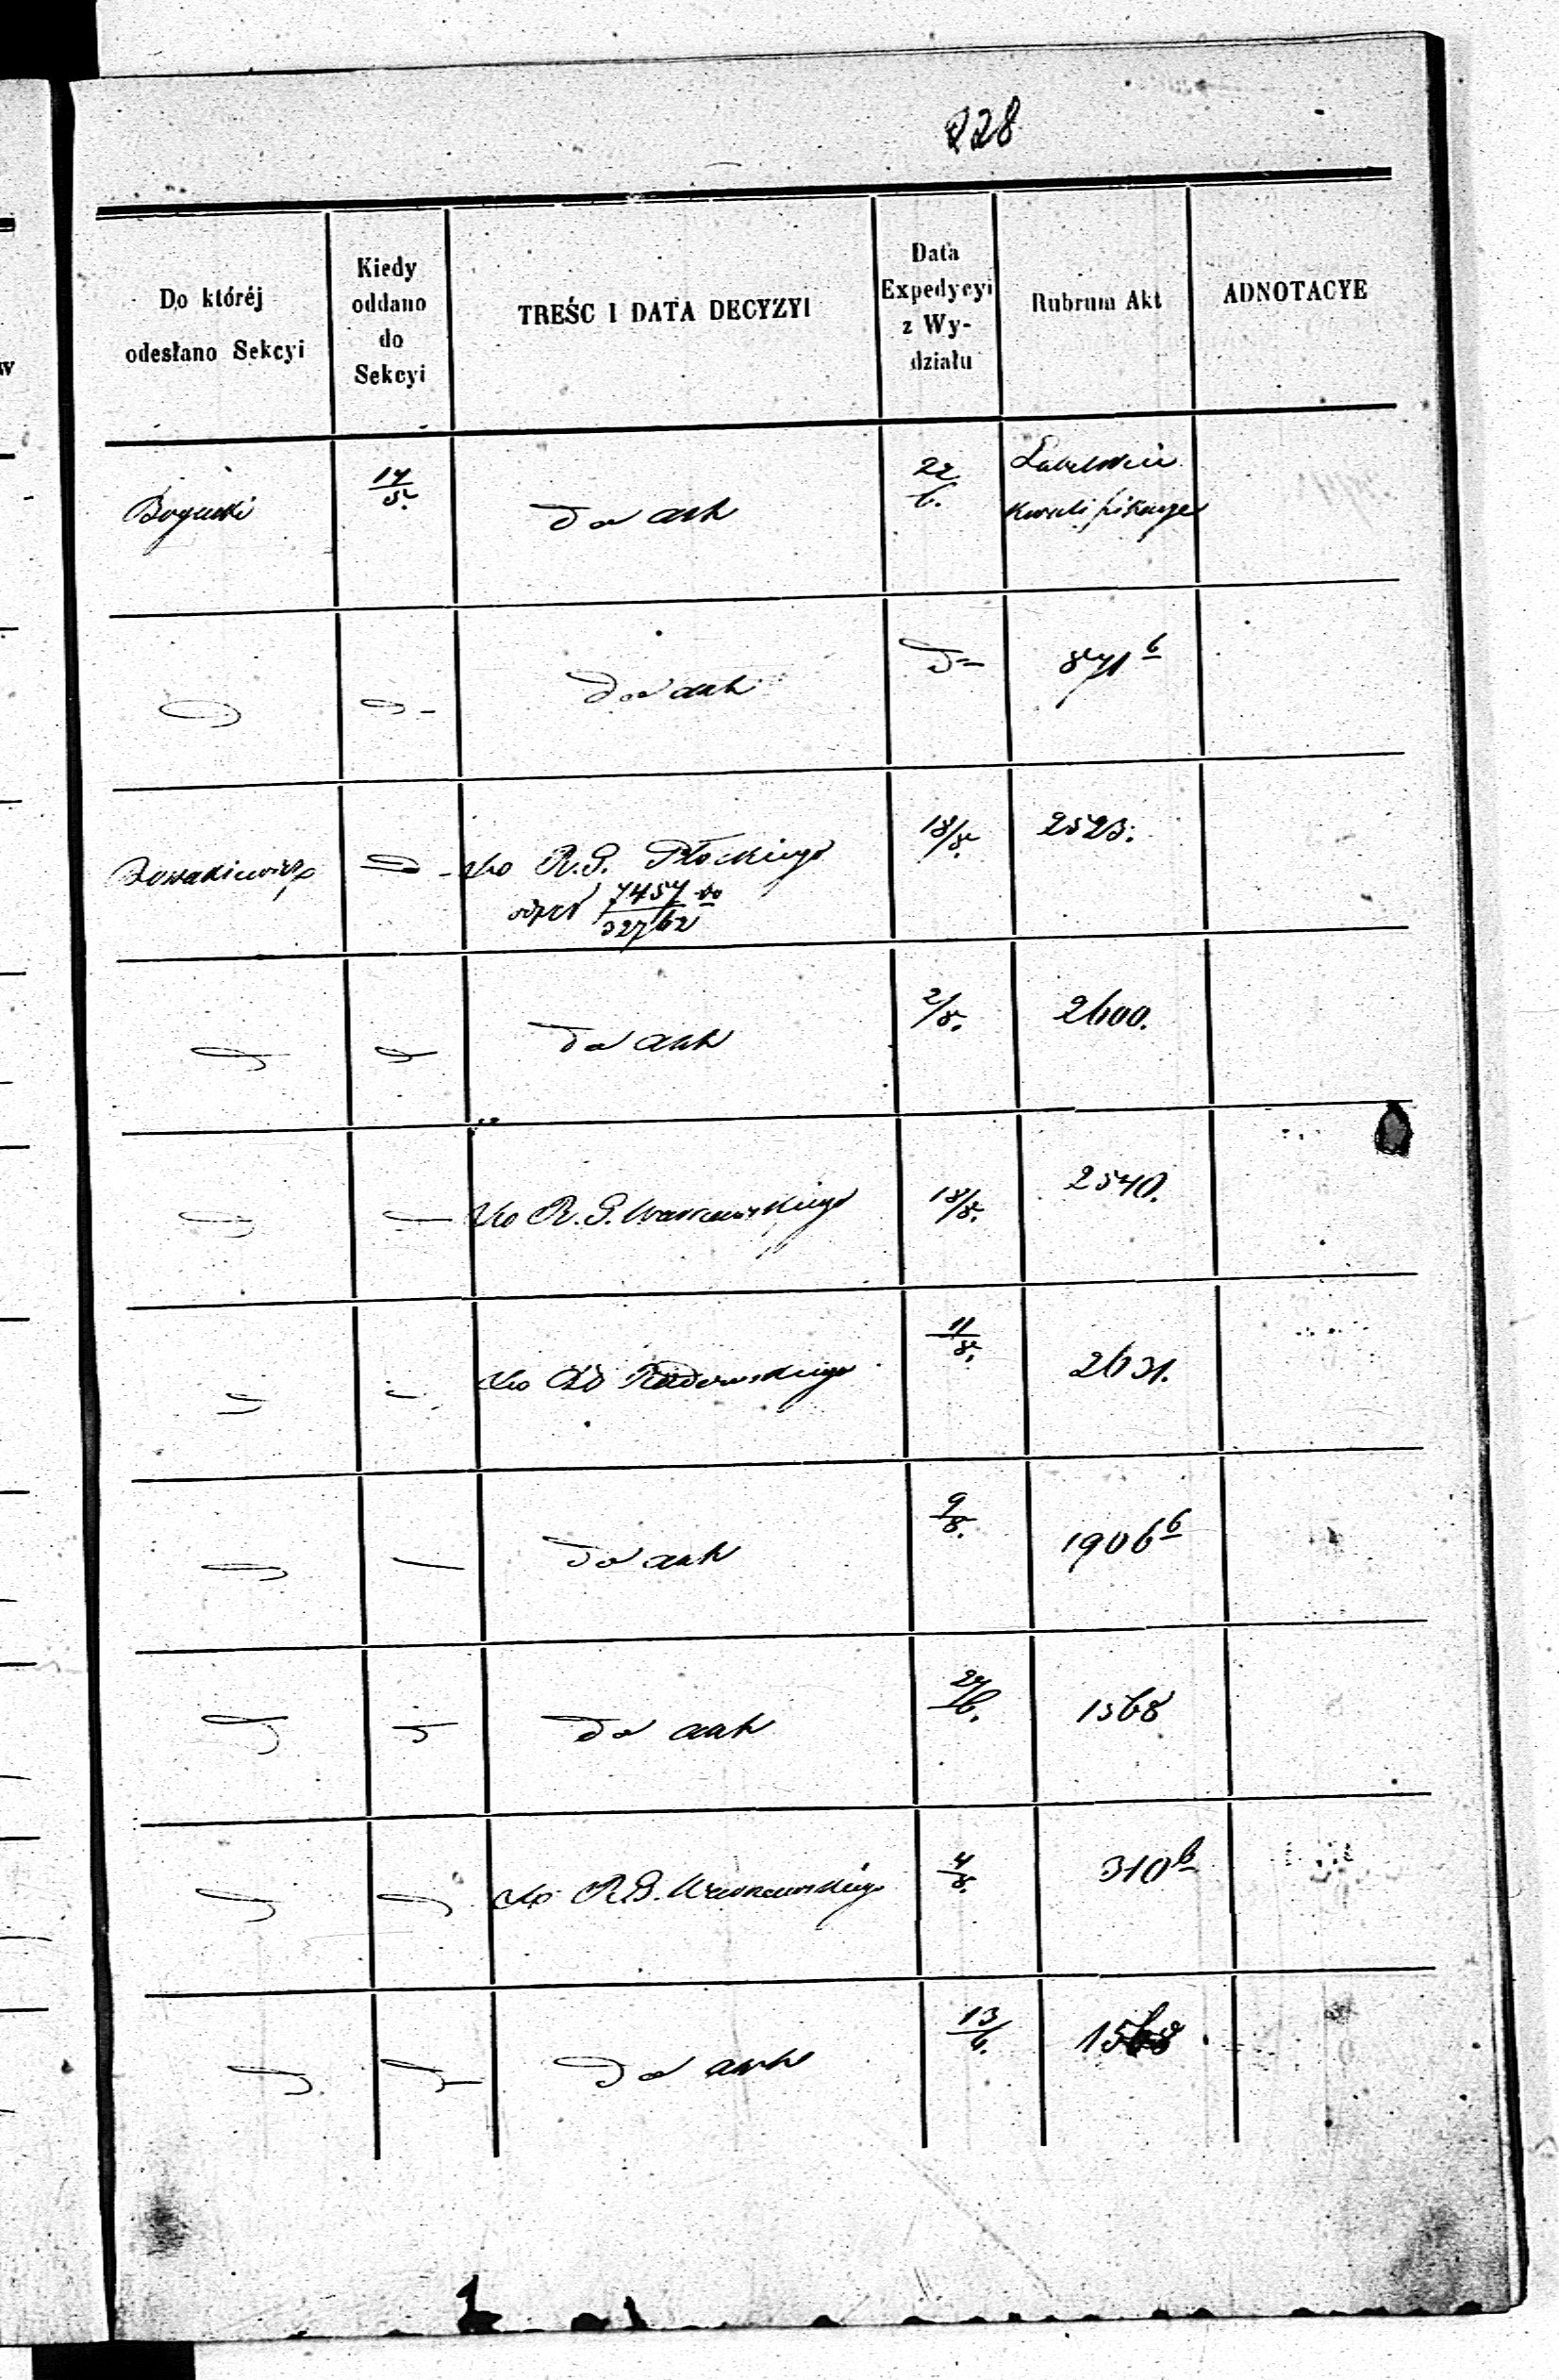 228
Do któréj
odesłano Sekcyi
Kiedy
oddano
do
Sekcyi
TREŚC I DATA DECYZYI
Data
Expedycyi
z Wy-
działu
Rubrum Akt
ADNOTACYE
Boguski
17/5.
Do akt
22/6.
Do akt
871 b
Do R. G. Płockiego
7457
32762
18/8.
2523.
Do akt
2/8.
2600.
Do R. G. Warszawskiego
18/8.
2540.
Do Radomskiego
11/8.
2631.
Do akt
9/8.
1906 b
Do akt
27/6.
1568
Do R. G. Warszawskiego
4/8.
310 b
Do akt
13/6.
1568